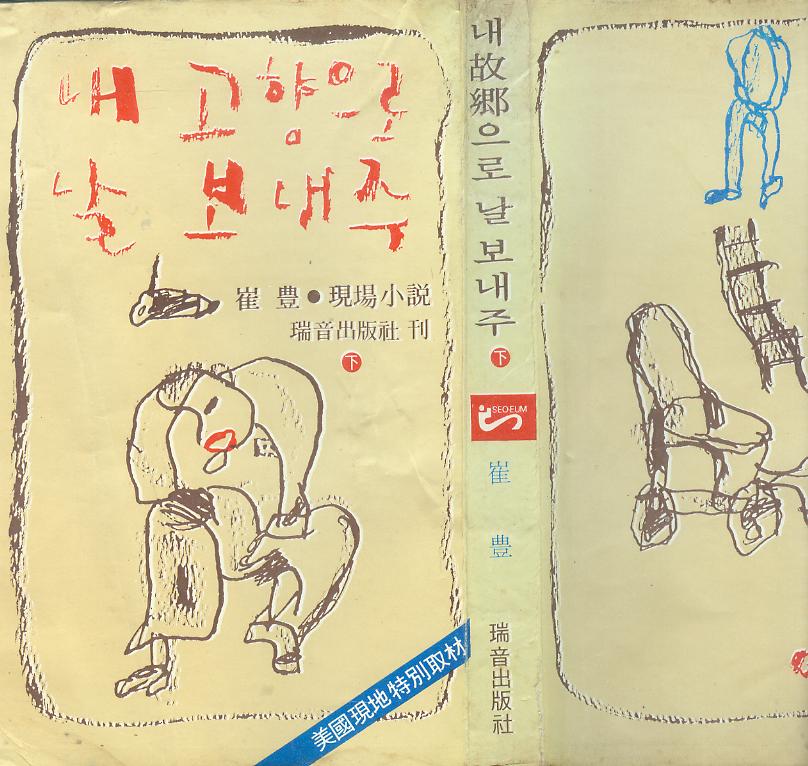 내 고향으로
날 보내주
崔 豊 ● 現場小説
瑞音出版社 刊
下
美國現地特別取材
내故郷으로 날 보내주
下
SEOEUM
崔 豊
瑞音出版社